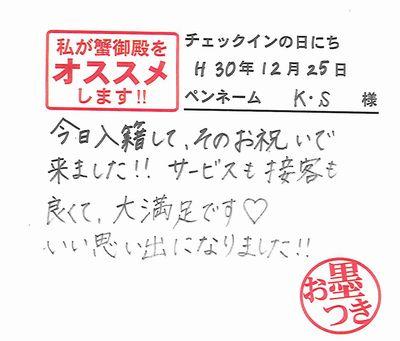 私が蟹御殿を
オススメ
します!!
チェックインの日にち
H 30年12月25日
ペンネーム K・S 様
今日入籍して、そのお祝いで
来ました!! サービスも接客も
良くて、大満足です♡
いい思い出になりました!!
お墨つき